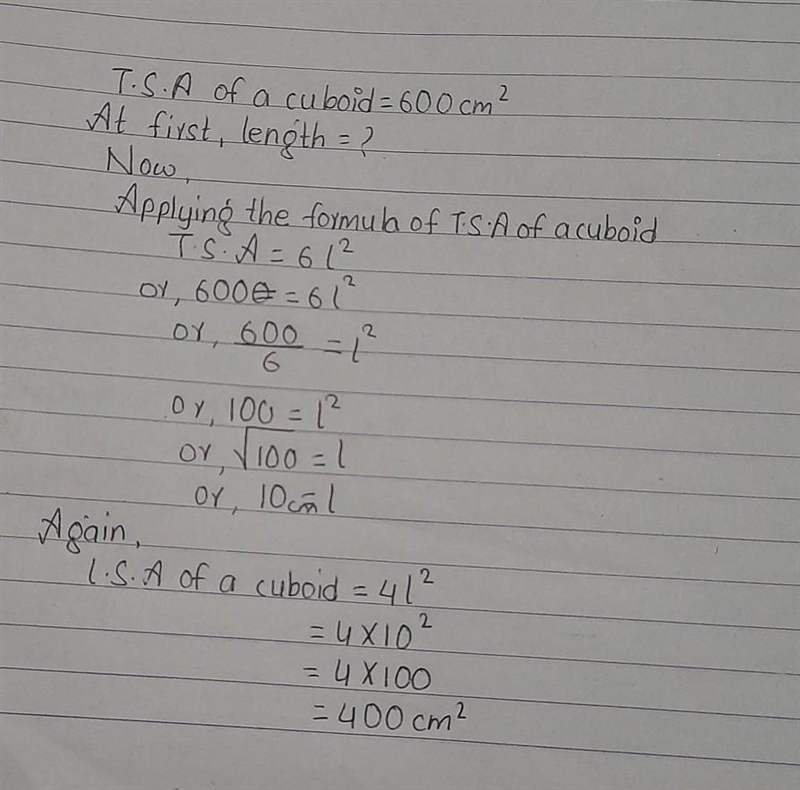 T.S.A of a cuboid = 600 cm²
At first, length = ?
Now,
Applying the formula of T.S.A of a cuboid
T.S.A = 6l²
or, 600 = 6l²
or, 600/6 = l²
or, 100 = l²
or, √100 = l
or, 10cm = l
Again,
L.S.A of a cuboid = 4l²
= 4 × 10²
= 4 × 100
= 400 cm²